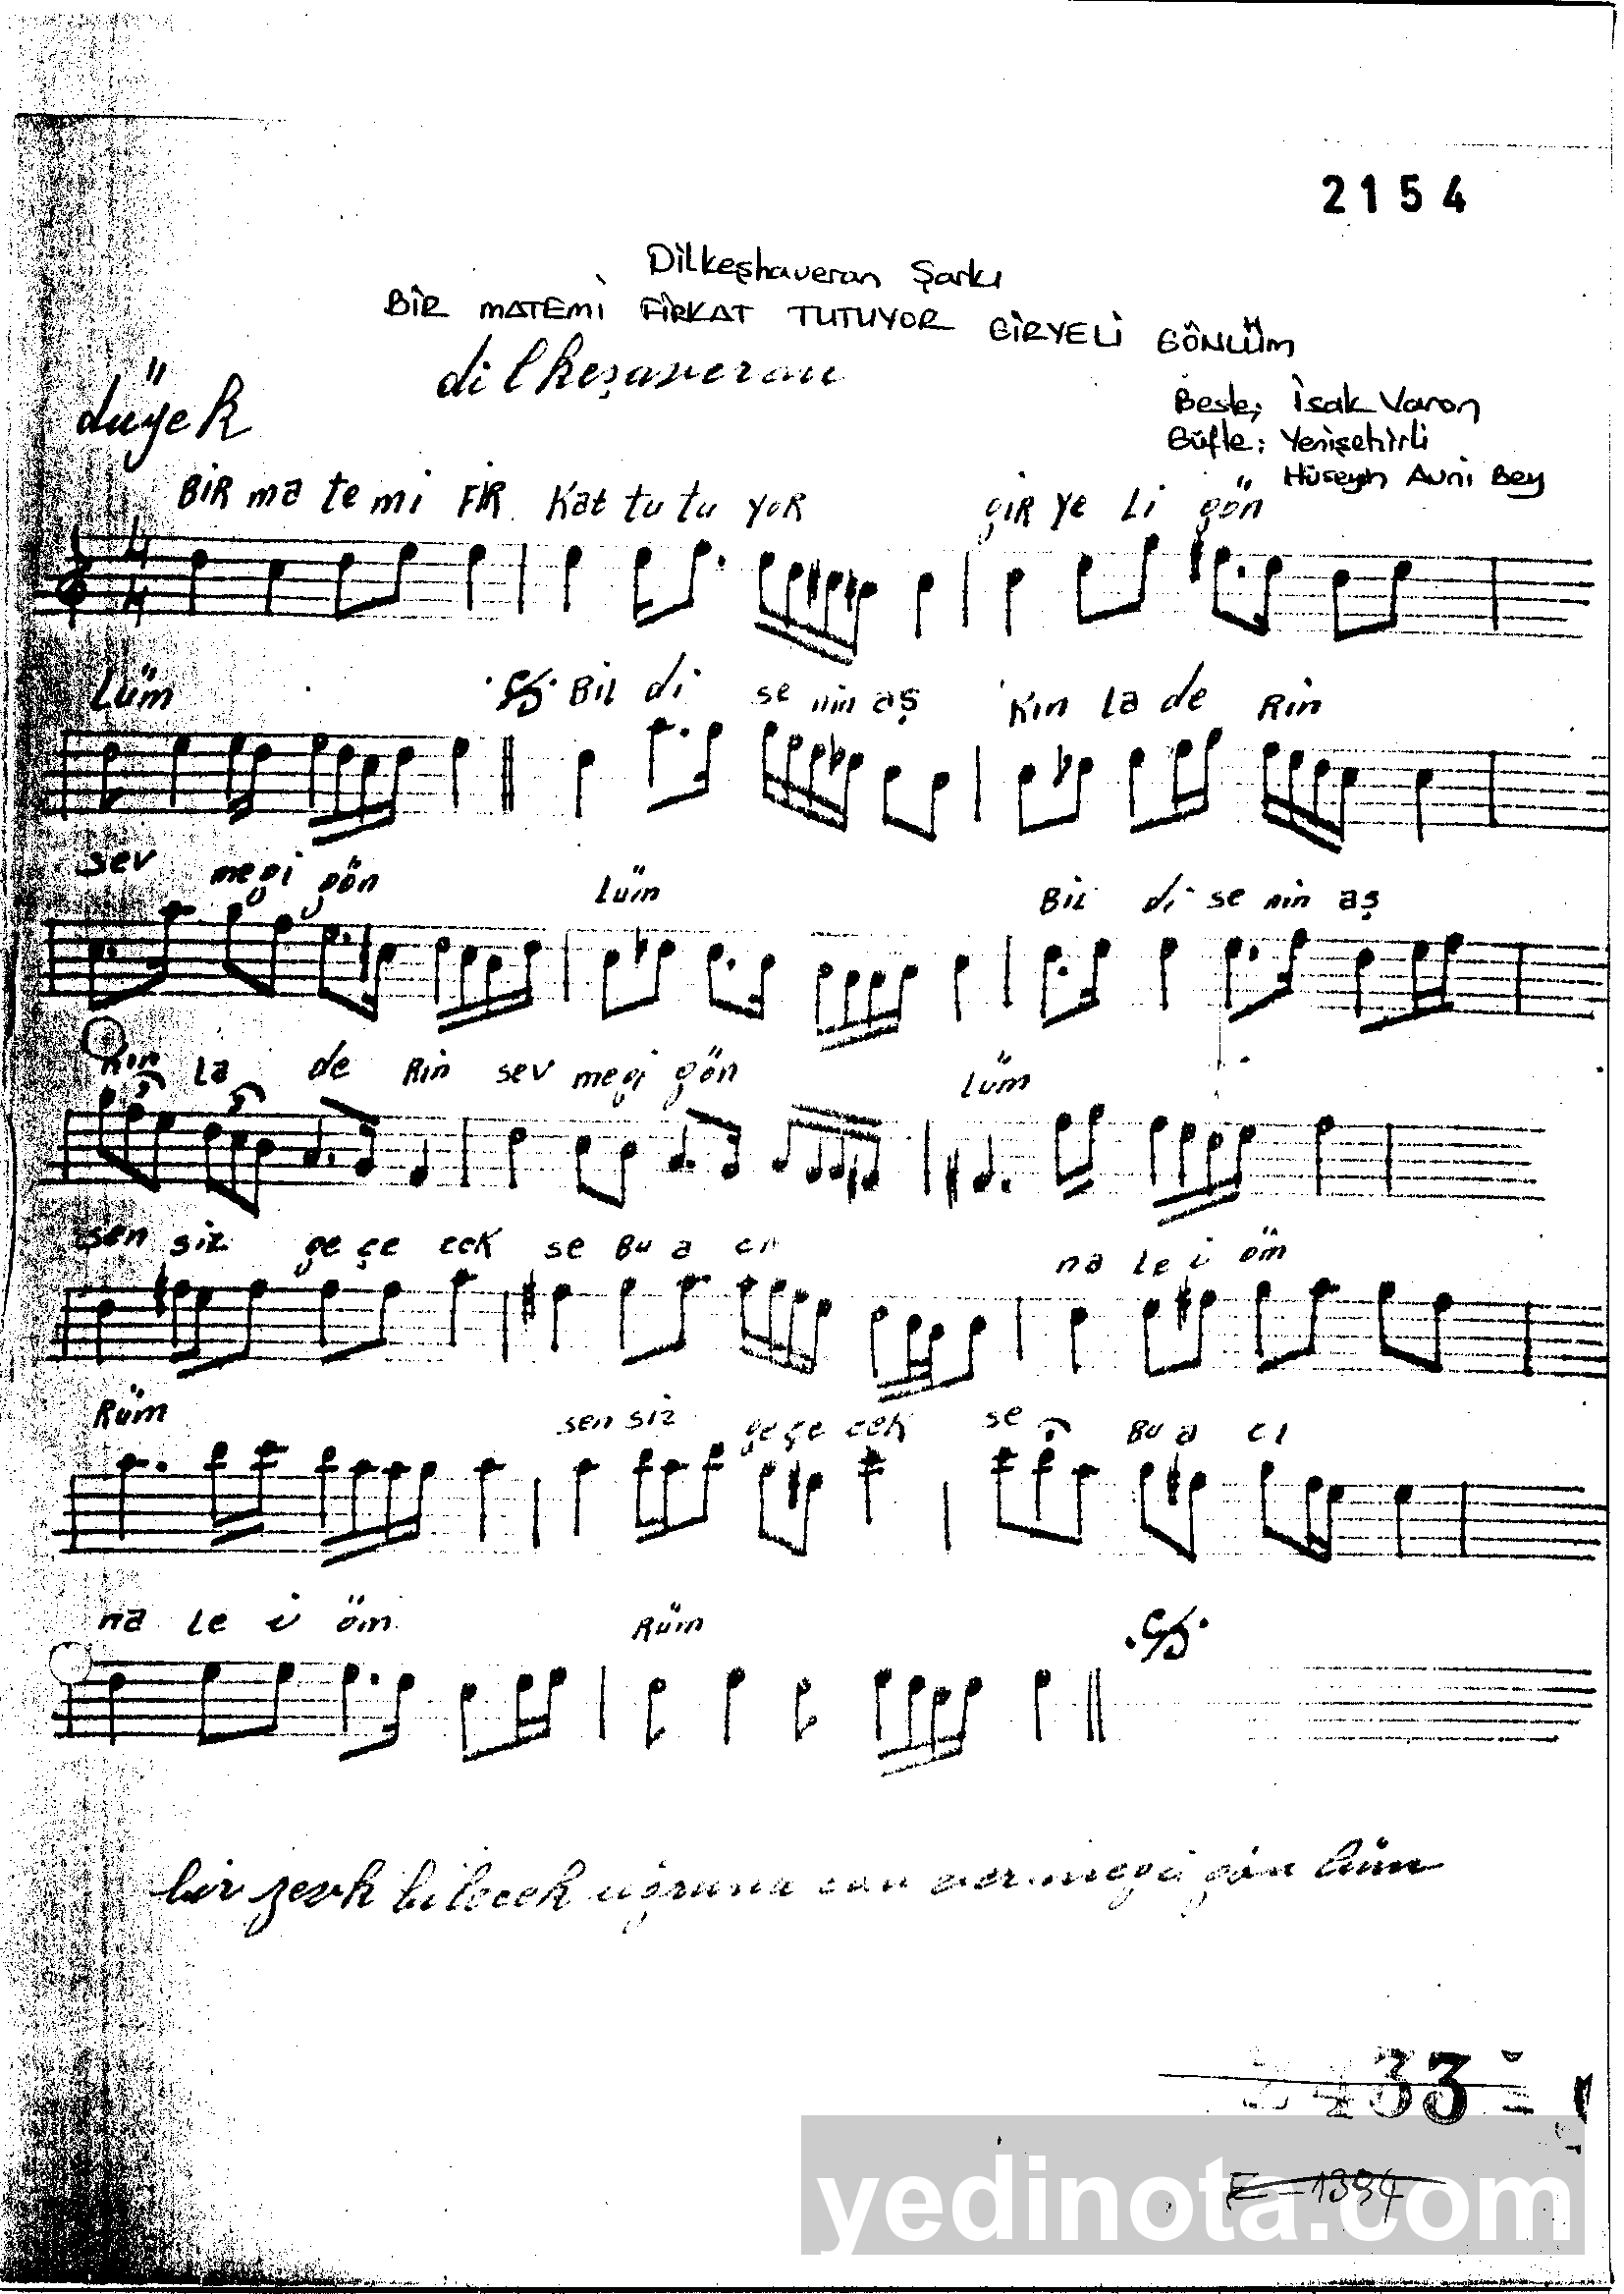 2154
Dilkeşhaveran Şarkı
BİR MATEMİ FİRKAT TUTUYOR GİRYELİ GÖNLÜM
dilkeşaveran
düyek
Beste; İsak Varon
Güfte: Yenişehirli
Hüseyin Avni Bey
BİR ma te mi FİR kat tu tu YOR gİR ye Li gön
4
4
Lüm BiL di se nin aş kın La de Rin
sev megi gön Lüm BiL di se nin aş
kın La de Rin sev megi gön Lüm
3 3
sen siz ge çe cek se Bu a cı na Le i öm
Rüm sen siz ge çe cek se Bu a cı
na Le i öm Rüm
bir zevk bilecek uğruna can vermegi gön lüm
33
E-1394
yedinota.com